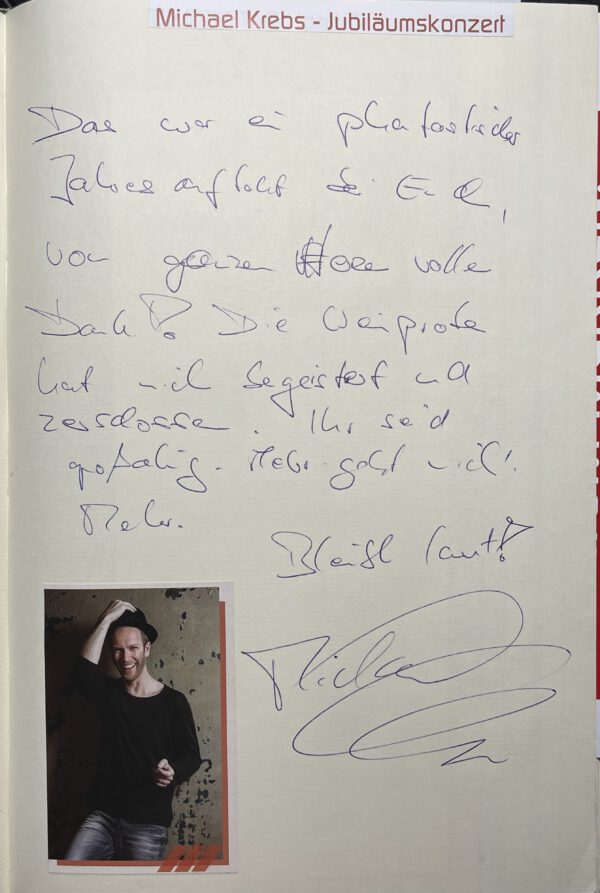 Michael Krebs - Jubiläumskonzert
Das war ein phatastischer
Jahresauftakt bei Euch,
von ganzen Herzen vollen
Dank! Die Weinprobe
hat mich begeistert und
zerschossen. Ihr seid
großartig. Mehr geht nicht.
Mehr.
Bleibt laut!
Michael